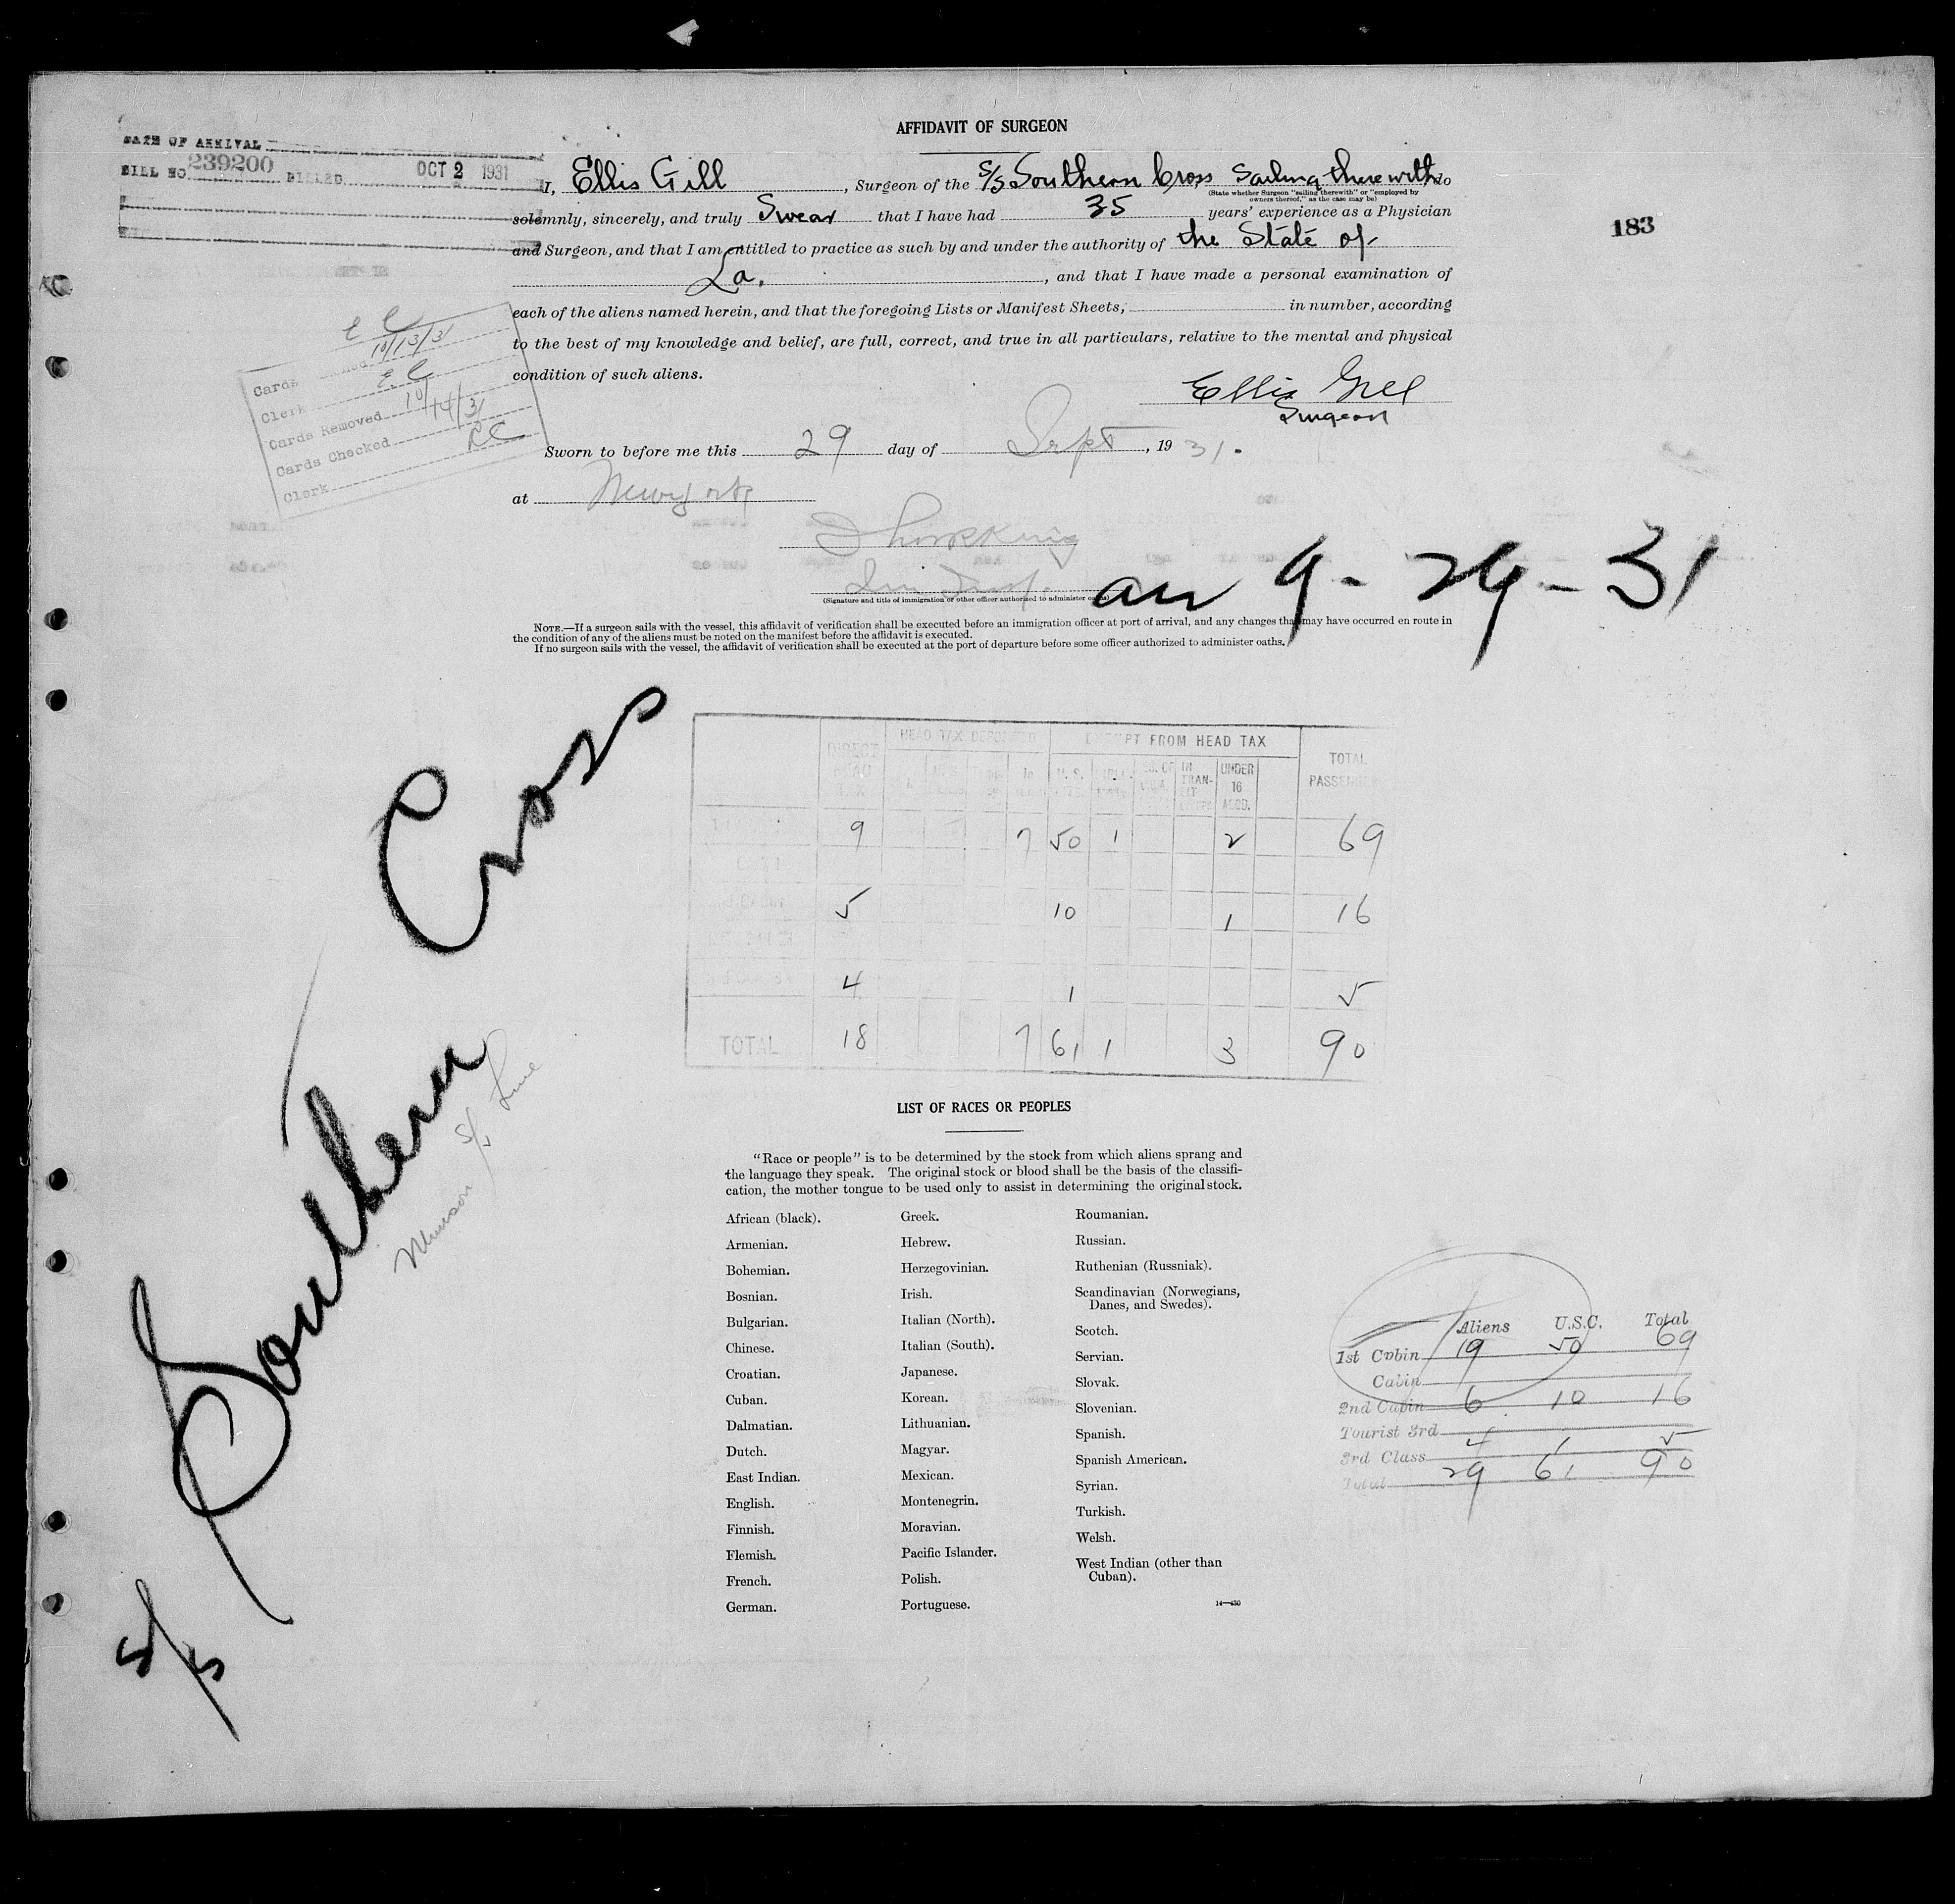 AFFIDAVIT OF SURGEON
DATE OF ARRIVAL
BILL NO. 239200 BILLED OCT 2 1931
I, Ellis Gill, Surgeon of the S/S Southern Cross Sailing therewith do
(State whether Surgeon "sailing therewith" or "employed by
owners thereof," as the case may be)
solemnly, sincerely, and truly Swear that I have had 35 years' experience as a Physician
183
and Surgeon, and that I am entitled to practice as such by and under the authority of the State of
La., and that I have made a personal examination of
each of the aliens named herein, and that the foregoing Lists or Manifest Sheets, in number, according
to the best of my knowledge and belief, are full, correct, and true in all particulars, relative to the mental and physical
condition of such aliens.
Ellis Gill
Surgeon
10/13/31
Cards
Clerk
Cards Removed 10/14/31
Cards Checked
Clerk
Sworn to before me this 29 day of Sept, 1931.
at New York
(Signature and title of immigration or other officer authorized to administer oaths)
arr 9-29-31
NOTE.—If a surgeon sails with the vessel, this affidavit of verification shall be executed before an immigration officer at port of arrival, and any changes that may have occurred en route in
the condition of any of the aliens must be noted on the manifest before the affidavit is executed.
If no surgeon sails with the vessel, the affidavit of verification shall be executed at the port of departure before some officer authorized to administer oaths.
S/S Southern Cross
Munson S/S Line
DIRECT HEAD TAX HEAD TAX DEPOSITED EXEMPT FROM HEAD TAX TOTAL PASSENGERS
U. S. IN TRANSIT UNDER 16 ACCD.
9 7 50 1 2 69
5 10 1 16
4 1 5
TOTAL 18 7 61 1 3 90
LIST OF RACES OR PEOPLES
"Race or people" is to be determined by the stock from which aliens sprang and
the language they speak. The original stock or blood shall be the basis of the classifi-
cation, the mother tongue to be used only to assist in determining the original stock.
African (black).
Armenian.
Bohemian.
Bosnian.
Bulgarian.
Chinese.
Croatian.
Cuban.
Dalmatian.
Dutch.
East Indian.
English.
Finnish.
Flemish.
French.
German.
Greek.
Hebrew.
Herzegovinian.
Irish.
Italian (North).
Italian (South).
Japanese.
Korean.
Lithuanian.
Magyar.
Mexican.
Montenegrin.
Moravian.
Pacific Islander.
Polish.
Portuguese.
Roumanian.
Russian.
Ruthenian (Russniak).
Scandinavian (Norwegians,
Danes, and Swedes).
Scotch.
Servian.
Slovak.
Slovenian.
Spanish.
Spanish American.
Syrian.
Turkish.
Welsh.
West Indian (other than
Cuban).
14—430
Aliens U.S.C. Total
1st Cabin 19 50 69
Cabin
2nd Cabin 6 10 16
Tourist 3rd
3rd Class 4 1 5
Total 29 61 90